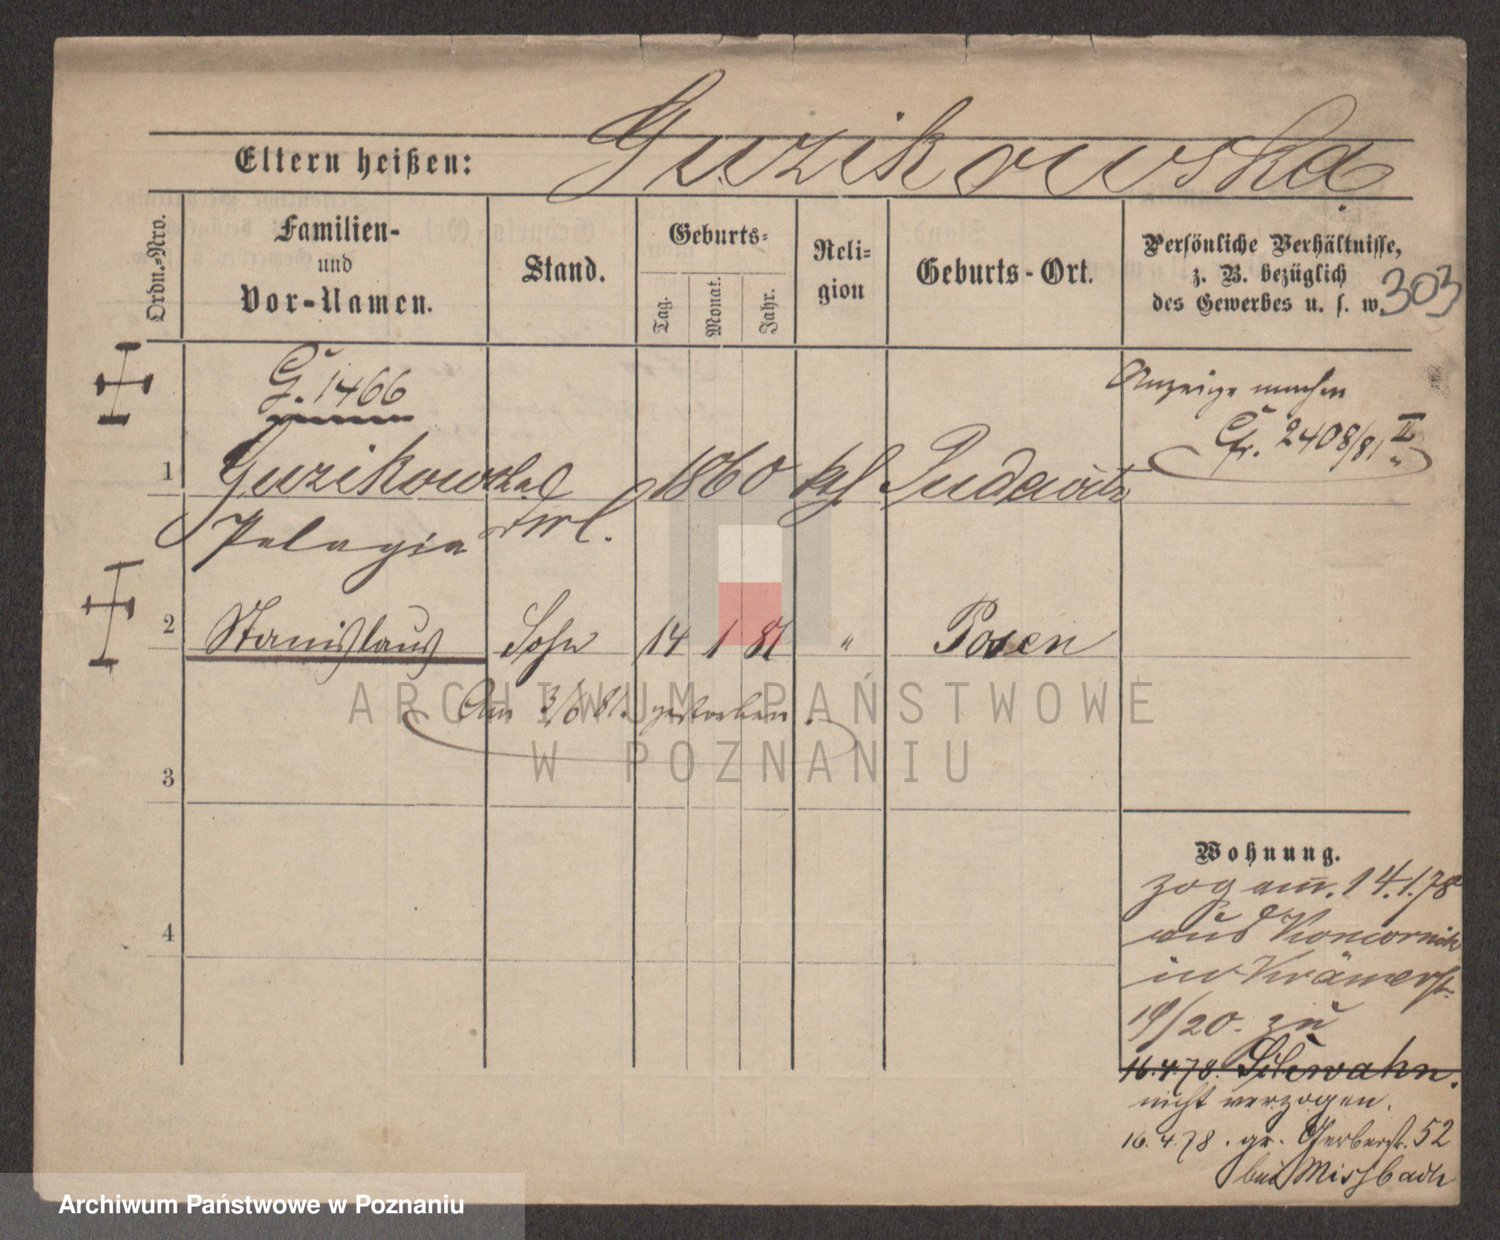 Guzikowska
Eltern heißen:
Ordn.-Nro.
Familien-
und
Vor-Namen.
Stand.
Geburts-
Tag.
Monat.
Jahr.
Reli-
gion
Geburts-Ort.
Persönliche Verhältnisse,
z. B. bezüglich
des Gewerbes u. s. w.
303
G. 1466
Anzeige machen
Cfr. 2408/81 II
1 Guzikowska 1860 kf Pudewitz
Pelagia
2 Stanislaus Sohn 14 1 81 " Posen
Am 3/6 81. gestorben.
ARCHIWUM PAŃSTWOWE
W POZNANIU
3
4
Wohnung.
zog am. 14.1.78
aus
in Krämerstr.
19/20. zu
16.4.78.
nicht verzogen.
16.4.78. gr. Gerberstr. 52
bei Missbach
Archiwum Państwowe w Poznaniu